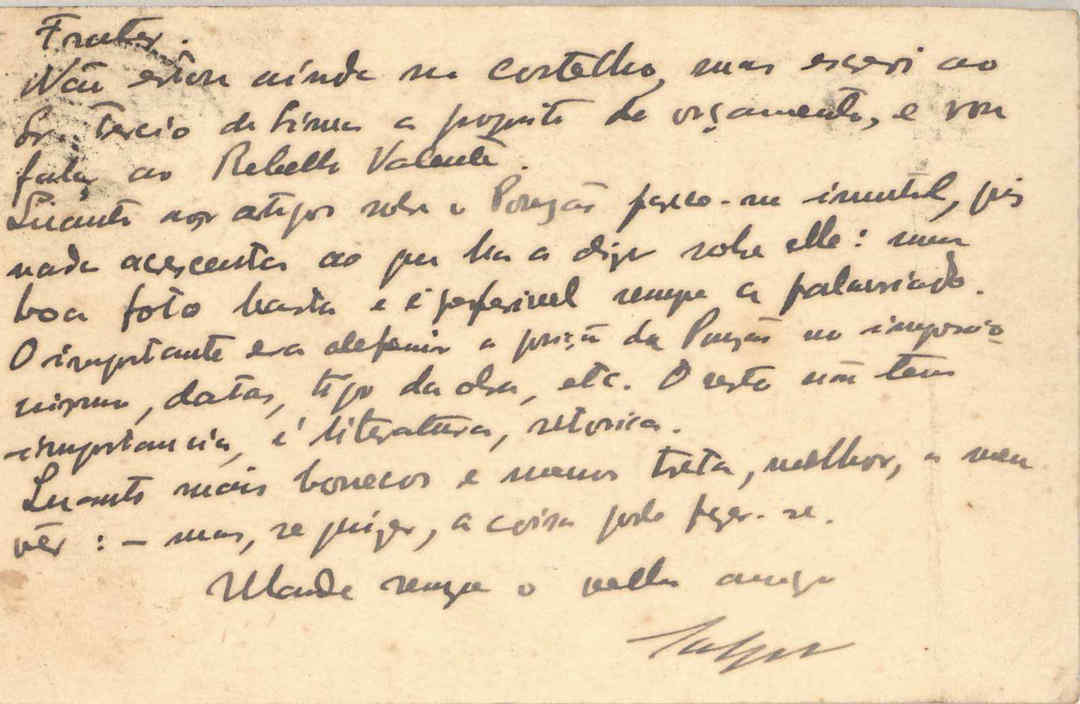 Frater.
Não estou ainda no Costelho, mas escrevi ao
Sr. Tercio de a proposta do orçamento, e vou
falar ao Rebello Valente.
Quanto aos artigos sobre o Pousão parece-me inutil, pois
nada acrescenta ao que ha a dizer sobre elle: uma
boa foto basta e é preferivel sempre a palavriado.
O importante era definir a posição do Pousão no impressio-
nismo, datas, tipo da obra, etc. O resto não tem
importancia, é literatura, retorica.
Quanto mais bonecos e menos treta, melhor, a meu
vêr: – mas, se quizer, a coisa pode fazer-se.
Mande sempre o velho amigo